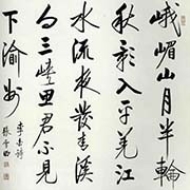 峨嵋山月半輪
秋影入平羌江
水流夜發清溪
向三峽思君不見
下渝州
李白詩